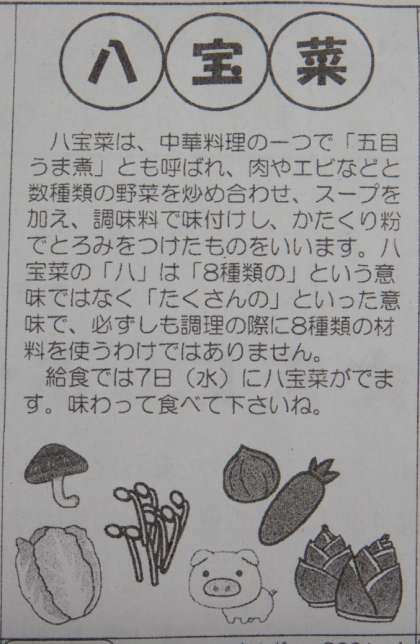 八宝菜
八宝菜は、中華料理の一つで「五目
うま煮」とも呼ばれ、肉やエビなどと
数種類の野菜を炒め合わせ、スープを
加え、調味料で味付けし、かたくり粉
でとろみをつけたものをいいます。八
宝菜の「八」は「8種類の」という意
味ではなく「たくさんの」といった意
味で、必ずしも調理の際に8種類の材
料を使うわけではありません。
給食では7日（水）に八宝菜がでま
す。味わって食べて下さいね。